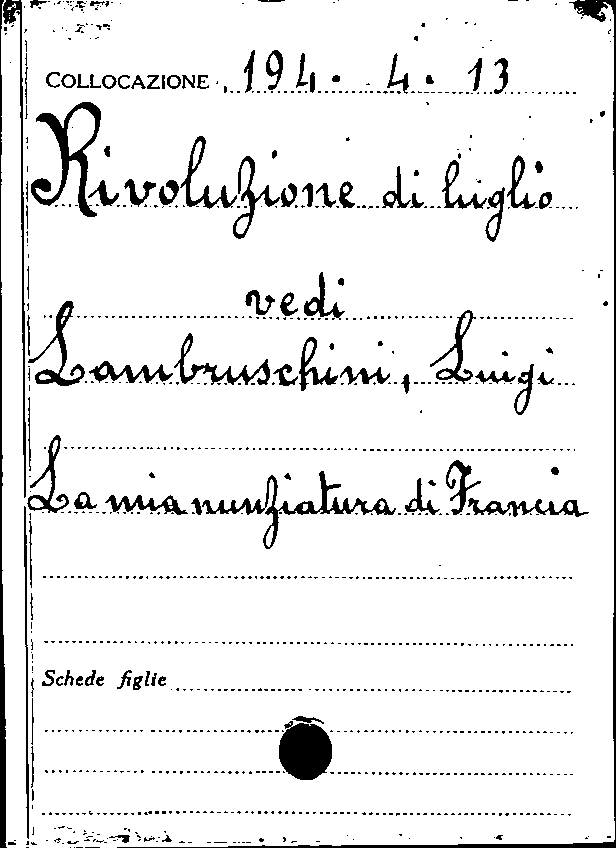 COLLOCAZIONE 194. 4. 13
Rivoluzione di luglio
vedi
Lambruschini, Luigi
La mia nunziatura di Francia
Schede figlie